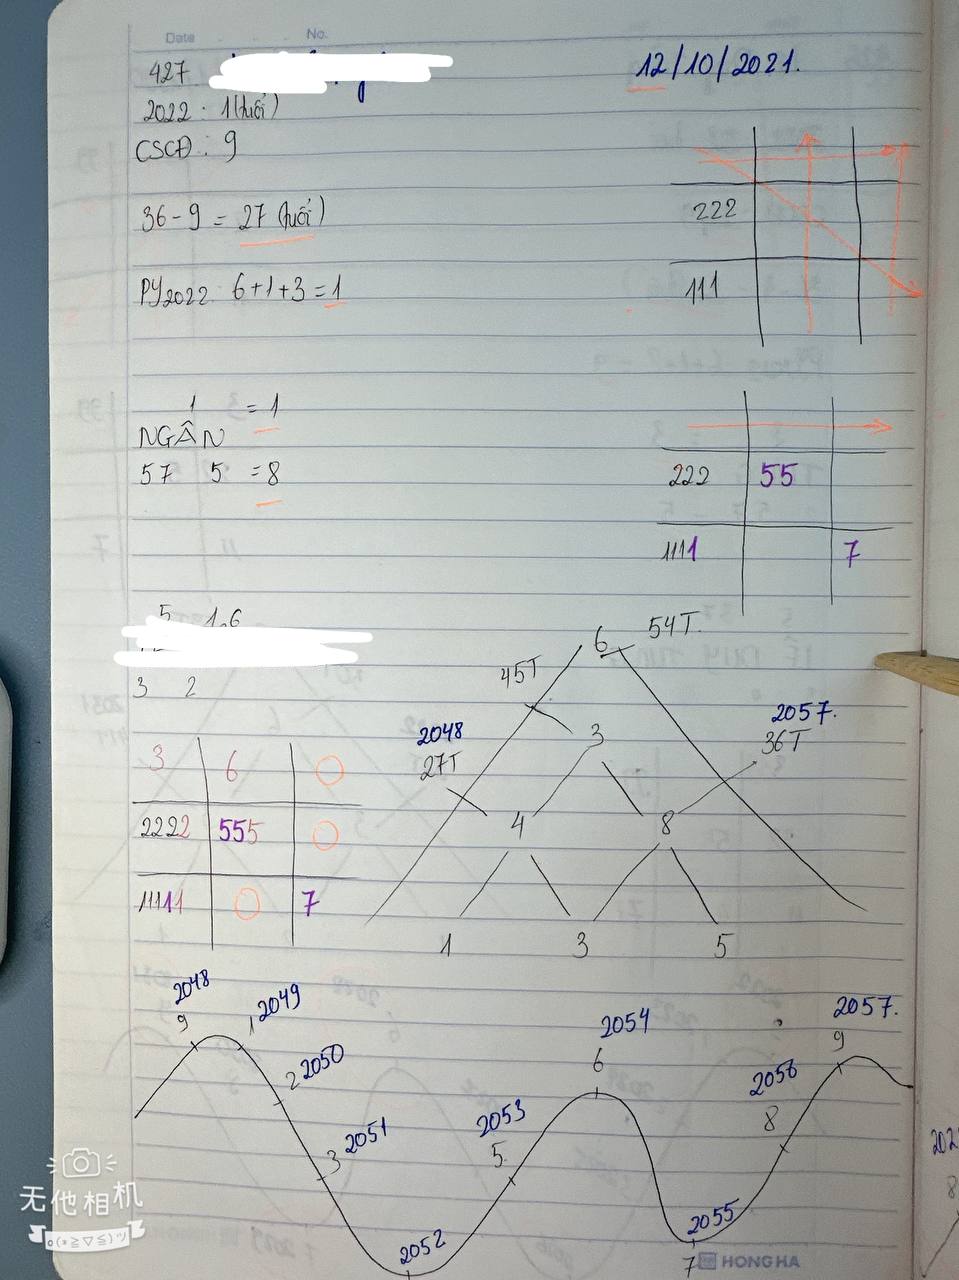 Date No.
427 12/10/2021.
2022 : 1 (tuổi)
CSCĐ : 9
36 - 9 = 27 (tuổi)
PY2022 6+1+3 = 1
222
111
1 = 1
NGÂN
57 5 = 8
222 55
1111 7
5 1 6
3 2
6 54T.
45T
3
2048
27T
2057.
36T
4 8
1 3 5
3 6 O
2222 555 O
11111 O 7
2048
9
1 2049
2 2050
3 2051
2052
2053
5.
2054
6
2055
7
2056
8
2057.
9
202
8
HONG HA
无他相机
o(*≧▽≦)ツ